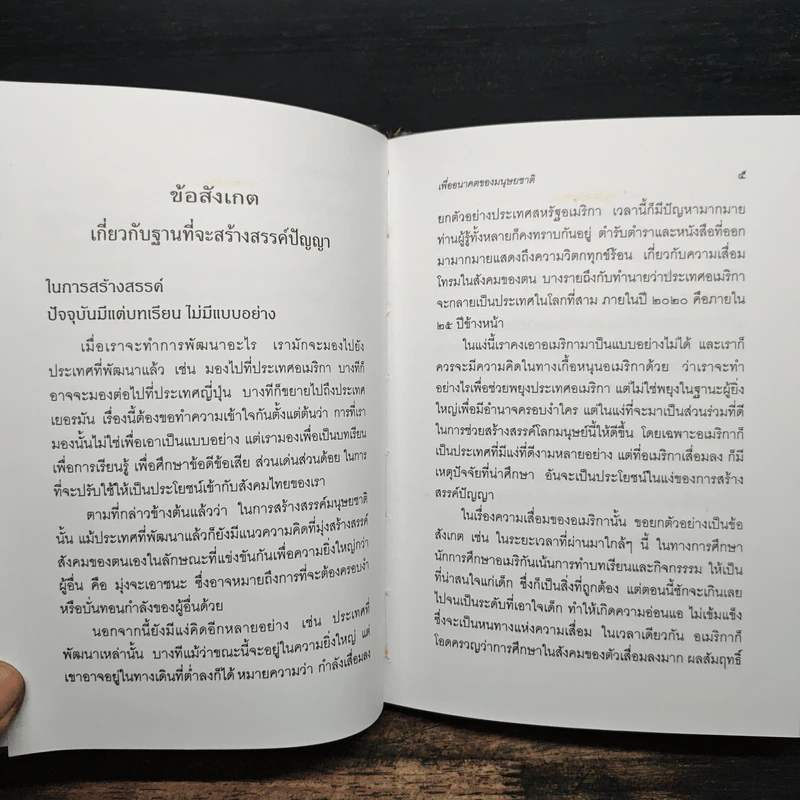 ข้อสังเกต
เกี่ยวกับฐานที่จะสร้างสรรค์ปัญญา
ในการสร้างสรรค์
ปัจจุบันมีแต่บทเรียน ไม่มีแบบอย่าง
เมื่อเราจะทำการพัฒนาอะไร เรามักจะมองไปยัง
ประเทศที่พัฒนาแล้ว เช่น มองไปที่ประเทศอเมริกา บางทีก็
อาจจะมองต่อไปที่ประเทศญี่ปุ่น บางทีก็ขยายไปถึงประเทศ
เยอรมัน เรื่องนี้ต้องขอทำความเข้าใจกันตั้งแต่ต้นว่า การที่เรา
มองนั้นไม่ใช่เพื่อเอาเป็นแบบอย่าง แต่เรามองเพื่อเป็นบทเรียน
เพื่อการเรียนรู้ เพื่อศึกษาข้อดีข้อเสีย ส่วนเด่นส่วนด้อย ในการ
ที่จะปรับใช้ให้เป็นประโยชน์เข้ากับสังคมไทยของเรา
ตามที่กล่าวข้างต้นแล้วว่า ในการสร้างสรรค์มนุษยชาติ
นั้น แม้ประเทศที่พัฒนาแล้วก็ยังมีแนวความคิดที่มุ่งสร้างสรรค์
สังคมของตนเองในลักษณะที่แข่งขันกันเพื่อความยิ่งใหญ่กว่า
ผู้อื่น คือ มุ่งจะเอาชนะ ซึ่งอาจหมายถึงการที่จะต้องครอบงำ
หรือบั่นทอนกำลังของผู้อื่นด้วย
นอกจากนี้ยังมีแง่คิดอีกหลายอย่าง เช่น ประเทศที่
พัฒนาเหล่านั้น บางทีแม้ว่าขณะนี้จะอยู่ในความยิ่งใหญ่ แต่
เขาอาจอยู่ในทางเดินที่ต่ำลงก็ได้ หมายความว่า กำลังเสื่อมลง
เพื่ออนาคตของมนุษยชาติ ๕
ยกตัวอย่างประเทศสหรัฐอเมริกา เวลานี้ก็มีปัญหามากมาย
ท่านผู้รู้ทั้งหลายก็คงทราบกันอยู่ ตำรับตำราและหนังสือที่ออก
มามากมายแสดงถึงความวิตกทุกข์ร้อน เกี่ยวกับความเสื่อม
โทรมในสังคมของตน บางรายถึงกับทำนายว่าประเทศอเมริกา
จะกลายเป็นประเทศในโลกที่สาม ภายในปี ๒๐๒๐ คือภายใน
๒๕ ปีข้างหน้า
ในแง่นี้เราคงเอาอเมริกามาเป็นแบบอย่างไม่ได้ และเราก็
ควรจะมีความคิดในทางเกื้อหนุนอเมริกาด้วย ว่าเราจะทำ
อย่างไรเพื่อช่วยพยุงประเทศอเมริกา แต่ไม่ใช่พยุงในฐานะผู้ยิ่ง
ใหญ่เพื่อมีอำนาจครอบงำใคร แต่ในแง่ที่จะมาเป็นส่วนร่วมที่ดี
ในการช่วยสร้างสรรค์โลกมนุษย์นี้ให้ดีขึ้น โดยเฉพาะอเมริกาก็
เป็นประเทศที่มีแง่ที่ดีงามหลายอย่าง แต่ที่อเมริกาเสื่อมลง ก็มี
เหตุปัจจัยที่น่าศึกษา อันจะเป็นประโยชน์ในแง่ของการสร้าง
สรรค์ปัญญา
ในเรื่องความเสื่อมของอเมริกานั้น ขอยกตัวอย่างเป็นข้อ
สังเกต เช่น ในระยะเวลาที่ผ่านมาใกล้ๆ นี้ ในทางการศึกษา
นักการศึกษาอเมริกันเน้นการทำบทเรียนและกิจกรรรม ให้เป็น
ที่น่าสนใจแก่เด็ก ซึ่งก็เป็นสิ่งที่ถูกต้อง แต่ตอนนี้ชักจะเกินเลย
ไปจนเป็นระดับที่เอาใจเด็ก ทำให้เกิดความอ่อนแอ ไม่เข้มแข็ง
ซึ่งจะเป็นหนทางแห่งความเสื่อม ในเวลาเดียวกัน อเมริกาก็
โอดครวญว่าการศึกษาในสังคมของตัวเสื่อมลงมาก ผลสัมฤทธิ์